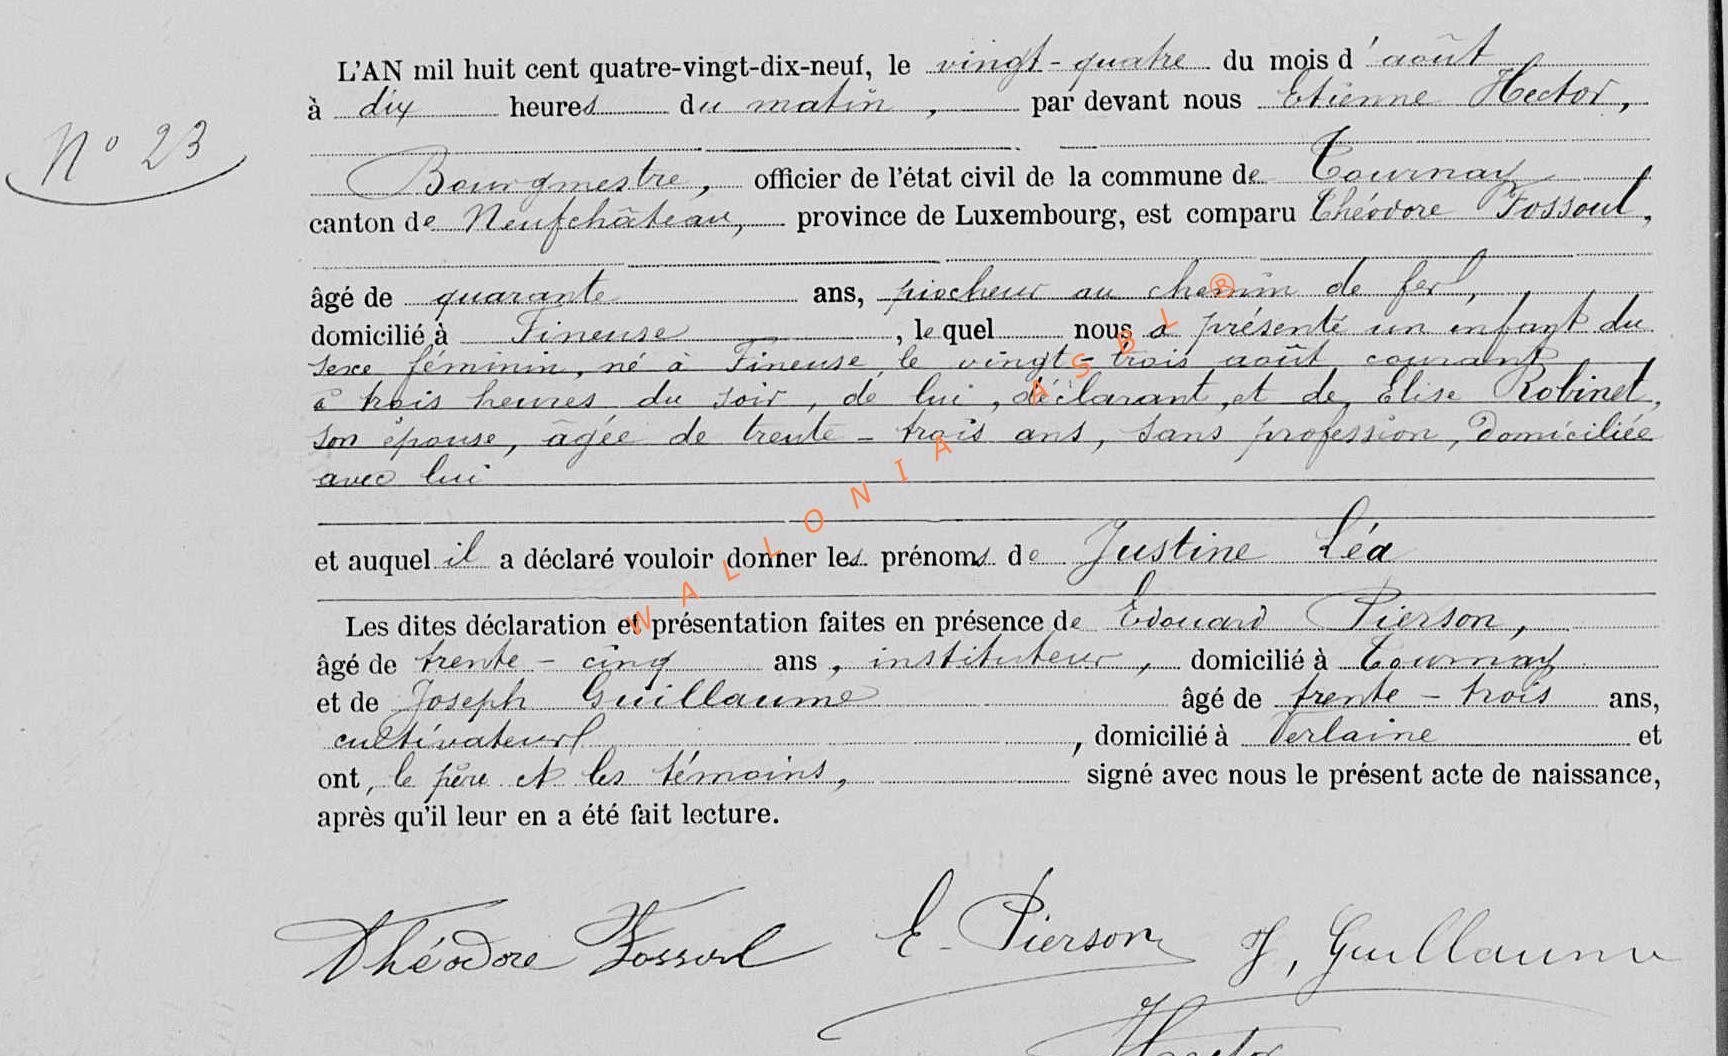 L'AN mil huit cent quatre-vingt-dix-neuf, le vingt-quatre du mois d'août
à dix heures du matin, par devant nous Etienne Hector,
N° 23
Bourgmestre, officier de l'état civil de la commune de Tournay
canton de Neufchâteau, province de Luxembourg, est comparu Théodore Fossoul,
âgé de quarante ans, piocheur au chemin de fer,
domicilié à Fineuse, lequel nous a présenté un enfant du
sexe féminin, né à Fineuse, le vingt-trois août courant
à trois heures du soir, de lui, déclarant, et de Elise Robinet,
son épouse, âgée de trente-trois ans, sans profession, domiciliée
avec lui
et auquel il a déclaré vouloir donner les prénoms de Justine Léa
Les dites déclaration et présentation faites en présence de Edouard Pierson,
âgé de trente-cinq ans, instituteur, domicilié à Tournay
et de Joseph Guillaume âgé de trente-trois ans,
cultivateur, domicilié à Verlaine et
ont, le père et les témoins, signé avec nous le présent acte de naissance,
après qu'il leur en a été fait lecture.
Théodore Fossoul E. Pierson J, Guillaume
Hector
WALLONIA ASBL ®